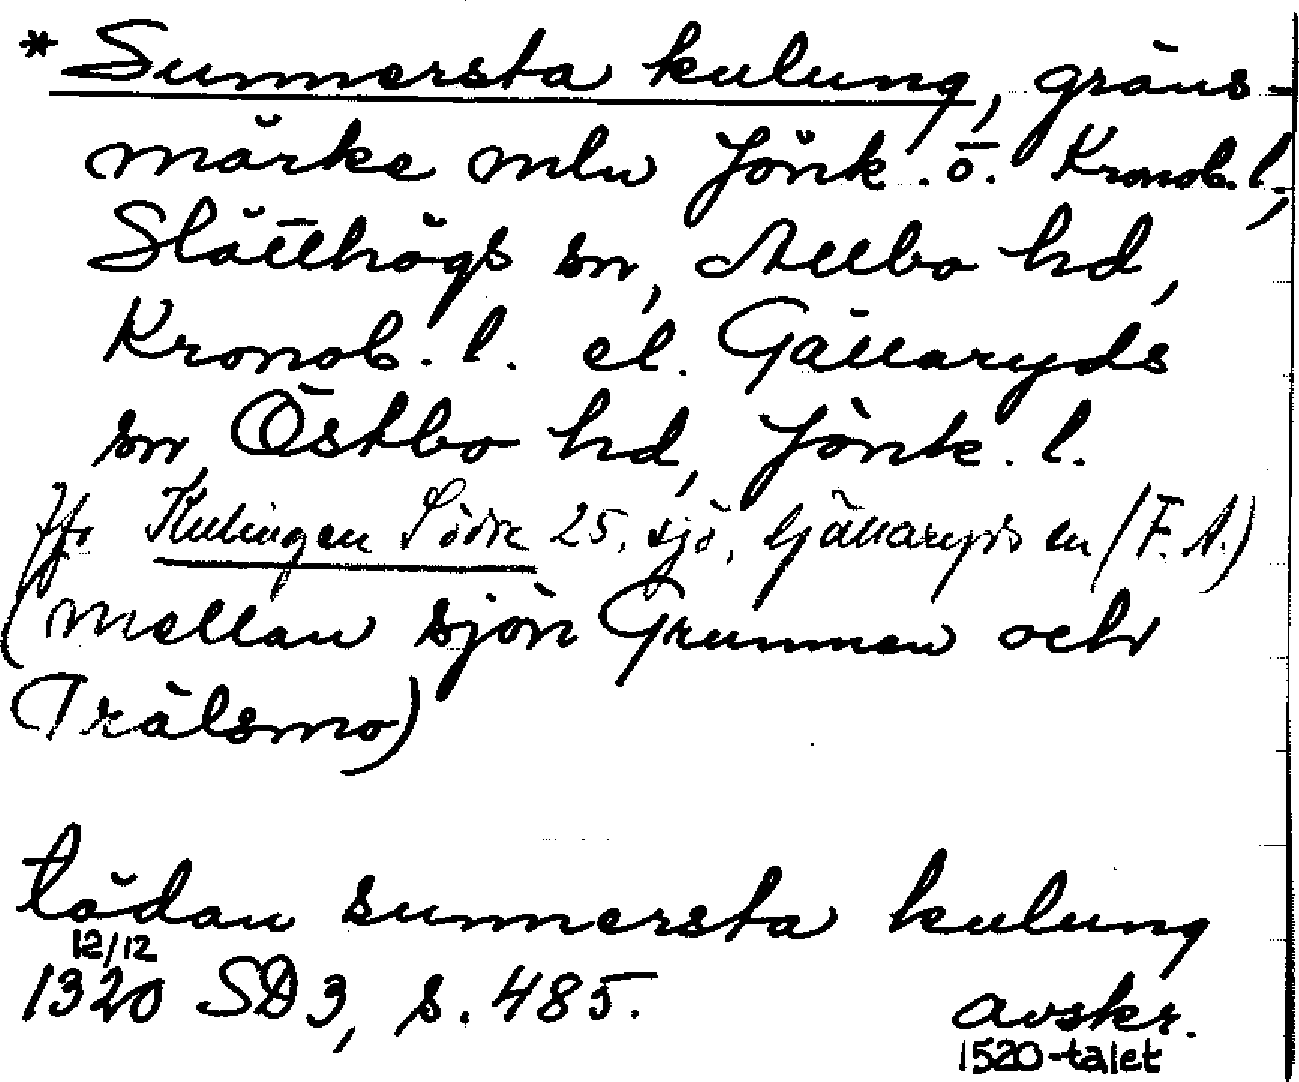 *Sunnersta kulung, gräns-
märke mln Jönk. o. Kronob. l.,
Slätthögs sn, Allbo hd,
Kronob. l. el. Gällaryds
sn, Östbo hd, Jönk. l.
Jfr Kulingen Södre 25, sjö, Gjällaryds sn (F. A.)
(mellan sjön Grunnen och
Trälsmo)
tädan sunnersta kulung
12/12
1320 SD 3, s. 485. avskr.
1520-talet